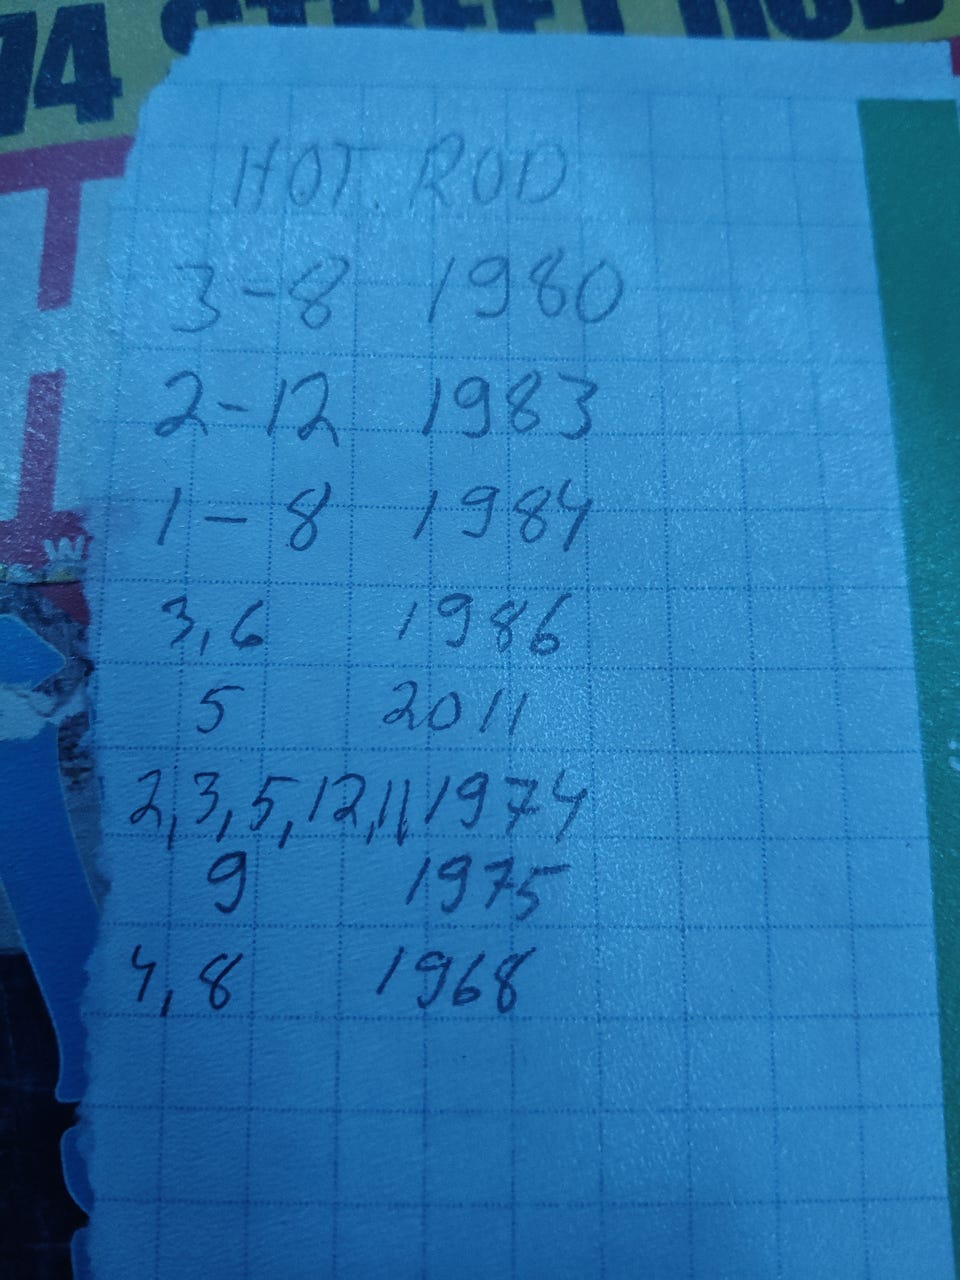 74 STREET ROD
HOT. ROD
3-8 1980
2-12 1983
1-8 1984
3,6 1986
5 2011
2,3,5,12,11 1974
9 1975
4,8 1968
W